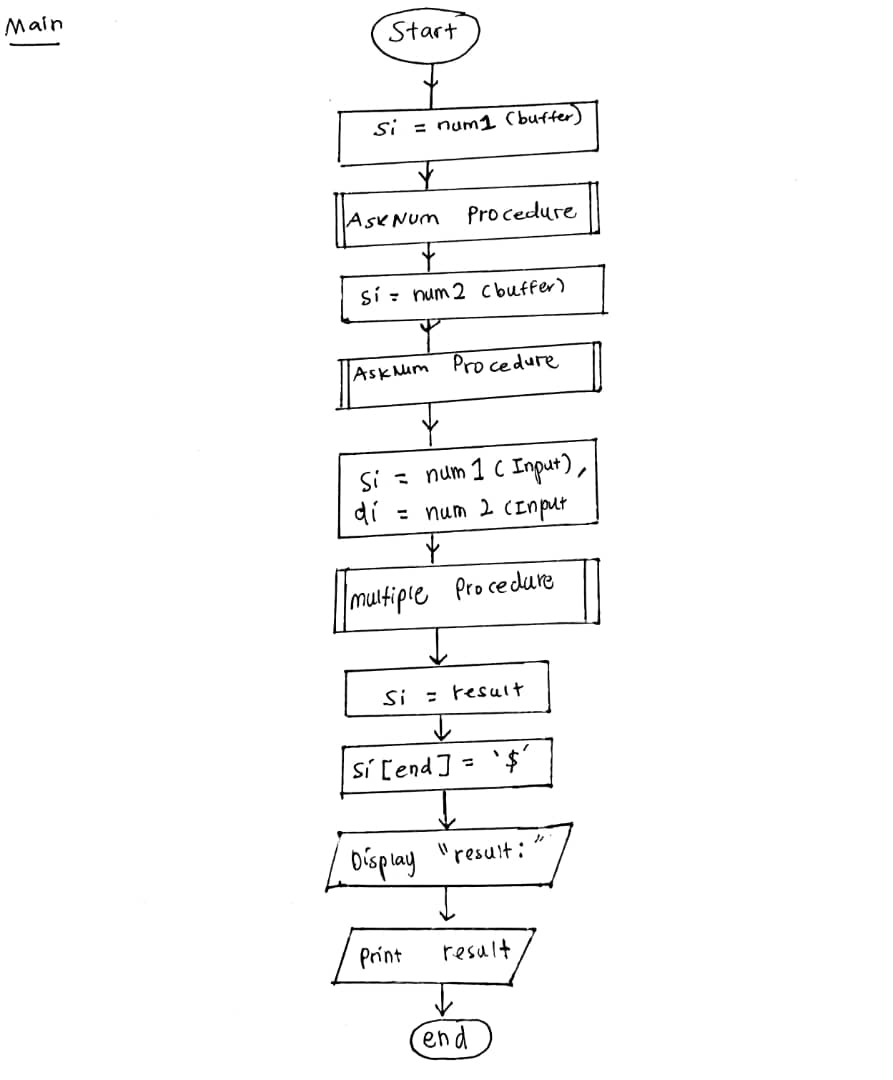 Main
Start
si = num1 (buffer)
AskNum Procedure
si = num2 (buffer)
AskNum Procedure
si = num1 (Input),
di = num 2 (Input
multiple Procedure
si = result
si [end] = '$'
Display "result:"
print result
end